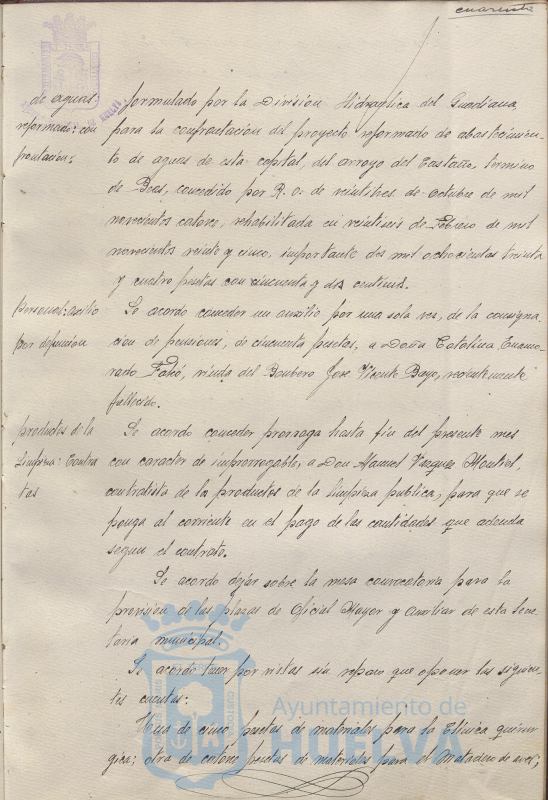 cuarenta
de aguas
reformado: con
frontación:
formulado por la División Hidraulica del Guadiana,
para la confrontación del proyecto reformado de abastecimien-
to de aguas de esta capital, del arroyo del Castaño, termino
de Beas, concedido por R. O. de veintitres de Octubre de mil
novecientos catorce, rehabilitada en veintiseis de Febrero de mil
novecientos veinte y cinco, importante dos mil ochocientas treinta
y cuatro pesetas con cincuenta y dos centims.
Personal: auxilio
por defunción
Se acordo conceder un auxilio por una sola vez, de la consigna-
cion de pensiones, de cincuenta pesetas, a Doña Catalina Enamo-
rado viuda del Bombero José Vicente Bayo, recientemente
fallecido.
productos de la
Limpieza: Contra
tas
Se acordo conceder prorroga hasta fin del presente mes
con caracter de improrrogable, a Don Manuel Vazquez Montiel,
contratista de la productos de la limpieza publica, para que se
ponga al corriente en el pago de las cantidades que adeuda
segun el contrato.
Se acordo dejar sobre la mesa convocatoria para la
provision de las plazas de Oficial Mayor y Auxiliar de esta Secre-
taria municipal.
Se acordo tener por vistas sin reparo que oponer las siguien-
tes cuentas:
Una de cinco pesetas de materiales para la Clinica quirur-
gica; otra de catorce pesetas de materiales para el Matadero de aves;
Ayuntamiento de
HUELVA